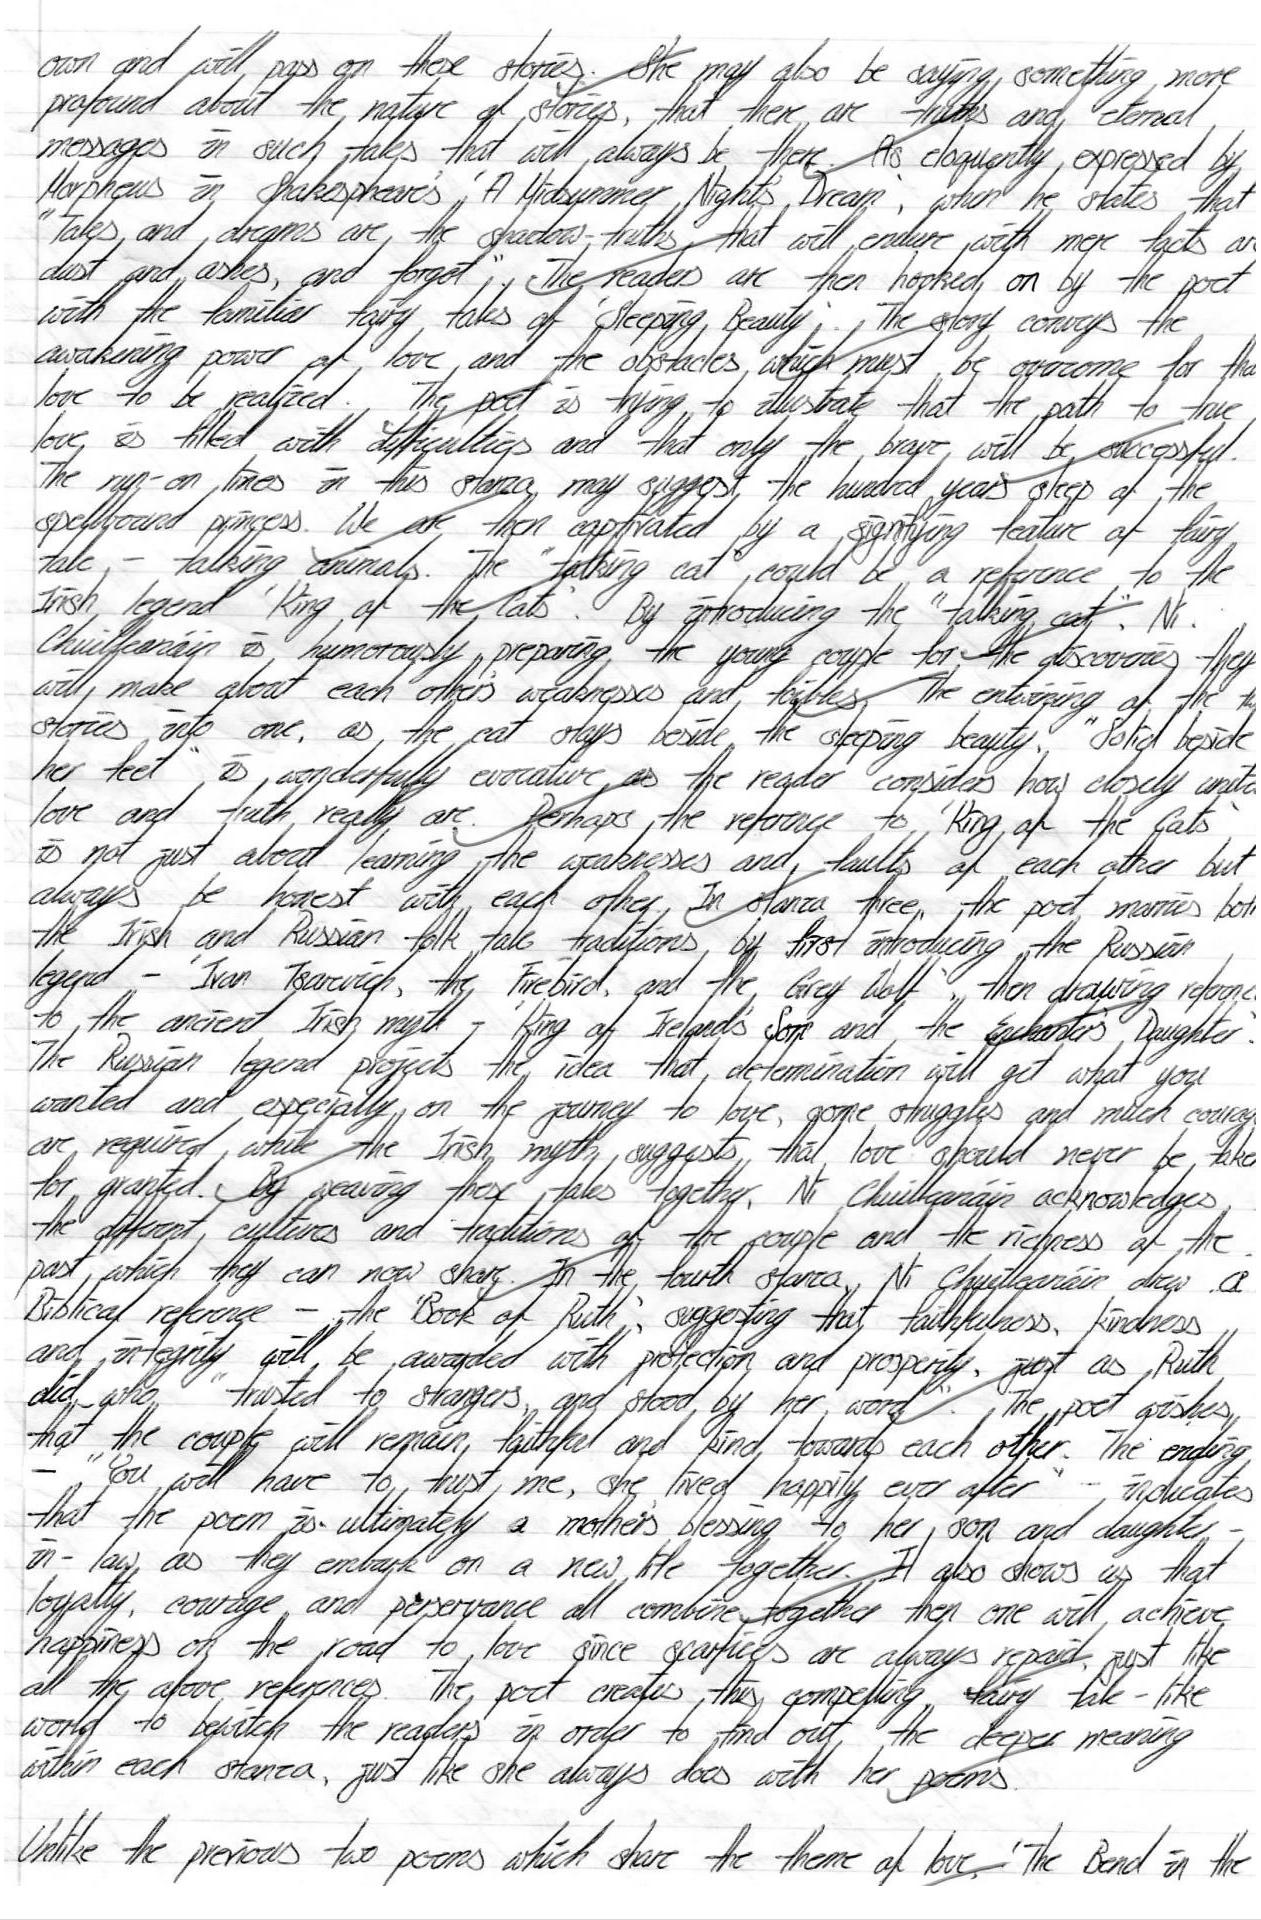 own and will pass on these stories. She may also be saying something more
profound about the nature of stories, that there are truths and eternal
messages in such tales that will always be there. As eloquently expressed by
Morpheus in Shakespheare's 'A Midsummer Night's Dream', when he states that
"Tales and dreams are the shadow-truths that will endure with mere facts are
dust and ashes, and forgot". The readers are then hooked on by the poet
with the familiar fairy tales of 'Sleeping Beauty'. The story conveys the
awakening power of love and the obstacles which must be overcome for that
love to be realized. The poet is trying to illustrate that the path to true
love is filled with difficulties and that only the brave will be successful.
The run-on lines in this stanza may suggest the hundred years sleep of the
spellbound princess. We are then captivated by a signifying feature of fairy
tale - talking animals. The "talking cat" could be a reference to the
Irish legend 'King of the Cats'. By introducing the "talking cat", Ni
Chuilleanáin is humorously preparing the young couple for the discoveries they
will make about each other's weaknesses and foibles. The entwining of the
stories into one, as the cat stays beside the sleeping beauty, "Solid beside
her feet" is wonderfully evocative as the reader considers how closely
love and truth really are. Perhaps the reference to 'King of the Cats'
is not just about learning the weaknesses and faults of each other but
always be honest with each other. In stanza three, the poet marries both
the Irish and Russian folk tale traditions by first introducing the Russian
legend - 'Ivan Tsarevich, the Firebird, and the Grey Wolf', then drawing
to the ancient Irish myth - 'King of Ireland's Son and the Enchanter's Daughter'.
The Russian legend projects the idea that determination will get what you
wanted and especially on the journey to love, some struggles and much courage
are required while the Irish myth suggests that love should never be taken
for granted. By weaving these tales together, Ni Chuilleanáin acknowledges
the different cultures and traditions of the couple and the richness of the
past which they can now share. In the fourth stanza, Ni Chuilleanáin drew a
Biblical reference - the 'Book of Ruth', suggesting that faithfulness, kindness
and integrity will be awarded with protection and prosperity, just as Ruth
did who "trusted to strangers and stood by her word". The poet wishes
that the couple will remain faithful and kind towards each other. The ending
- "You will have to trust me, she lived happily ever after" - indicates
that the poem is ultimately a mother's blessing to her son and daughter-
in-law as they embark on a new life together. It also shows us that
loyalty, courage and perservance all combine together then one will achieve
happiness on the road to love since scarfices are always repaid, just like
all the above references. The poet creates this compelling, fairy tale-like
world to bewitch the readers in order to find out the deeper meaning
within each stanza, just like she always does with her poems.
Unlike the previous two poems which share the theme of love, 'The Bend in the